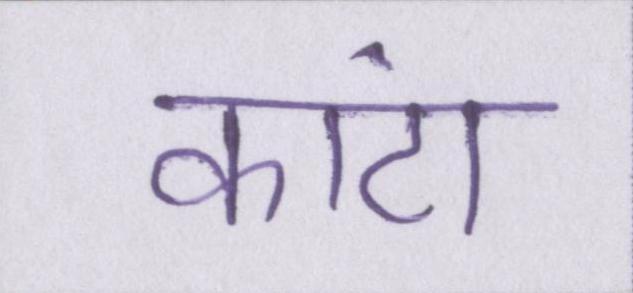 कांटा